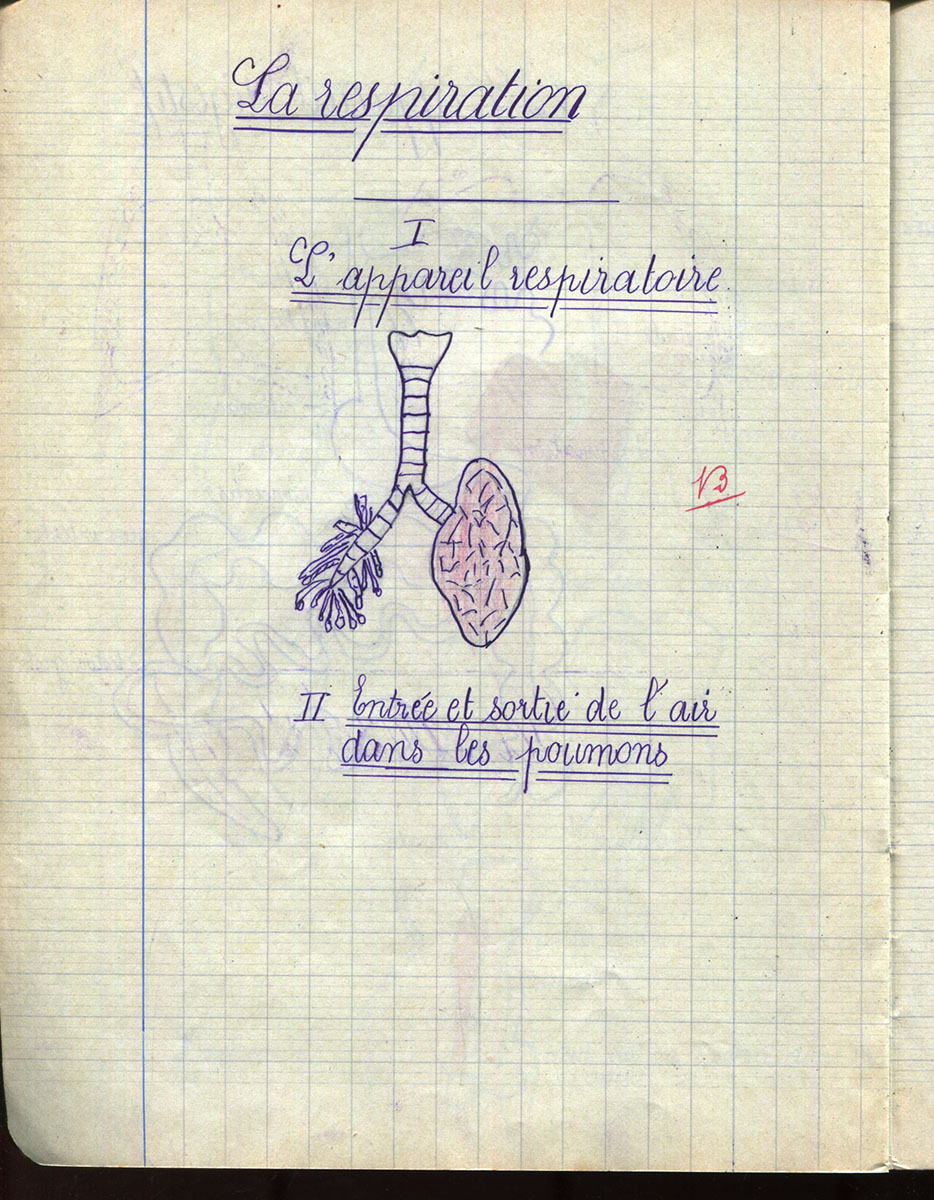 La respiration
I
L'appareil respiratoire
VB
II Entrée et sortie de l'air
dans les poumons